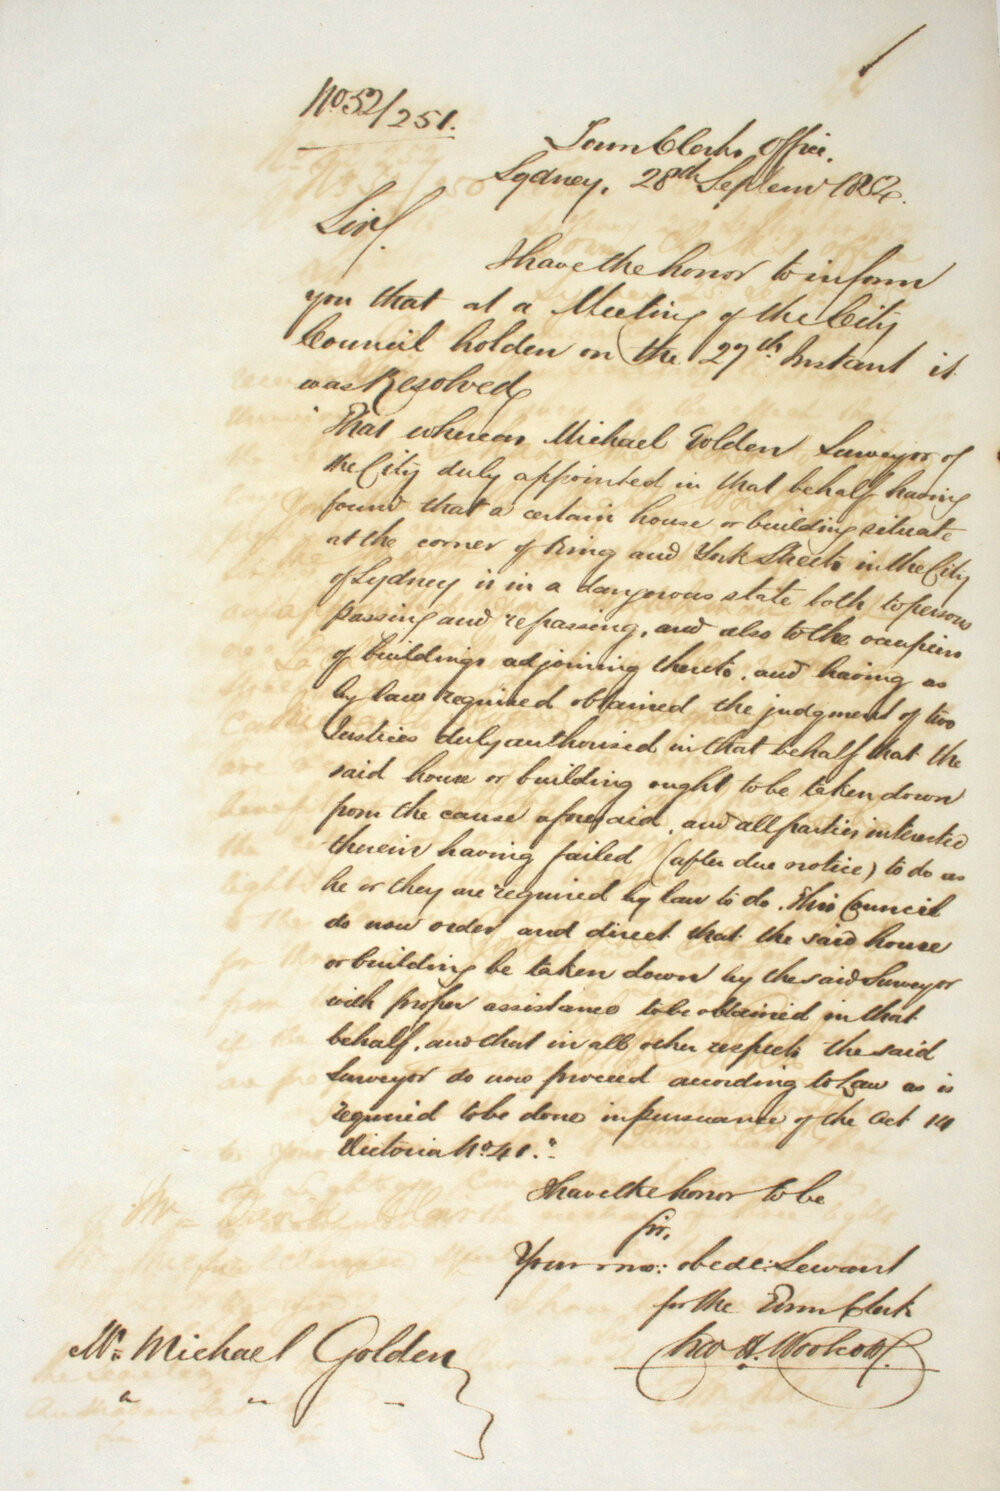 No 52/251.
Town Clerks Office.
Sydney, 28th Septemr 1852.
Sir/
I have the honor to inform
you that at a Meeting of the City
Council holden on the 27th Instant it
was Resolved,
"That whereas Michael Golden Surveyor of
the City duly appointed in that behalf having
found that a certain house or building situate
at the corner of King and York Streets in the City
of Sydney is in a dangerous state both to persons
passing and repassing, and also to the occupiers
of buildings adjoining thereto, and having as
by law required obtained the judgment of two
Justices duly authorised in that behalf that the
said house or building ought to be taken down
from the cause aforesaid, and all parties interested
therein having failed (after due notice) to do as
he or they are required by law to do. This Council
do now order and direct that the said house
or building be taken down by the said Surveyor
with proper assistance to be obtained in that
behalf, and that in all other respects the said
Surveyor do now proceed according to Law as is
required to be done in pursuance of the Act 14
Victoria No 41."
I have the honor to be
Sir,
Your mo: obedt: Servant
for the Town Clerk
Geo H. Woolcott
Mr. Michael Golden
" " "